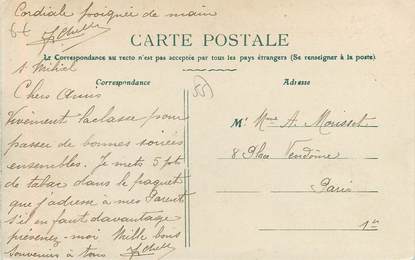 Cordiale poignée de main
CARTE POSTALE
La Correspondance au recto n'est pas acceptée par tous les pays étrangers (Se renseigner à la poste).
St Mihiel
Correspondance
Adresse
(55)
Chers Amis
Vivement la classe pour
passer de bonnes soirées
ensembles. Je mets 5 pts
de tabac dans le paquet
que j'adresse à mes Parents
s'il en faut davantage
prévenez-moi Mille bons
souvenirs à tous
Mr Mme A. Mousset
8 Place Vendôme
Paris
1er